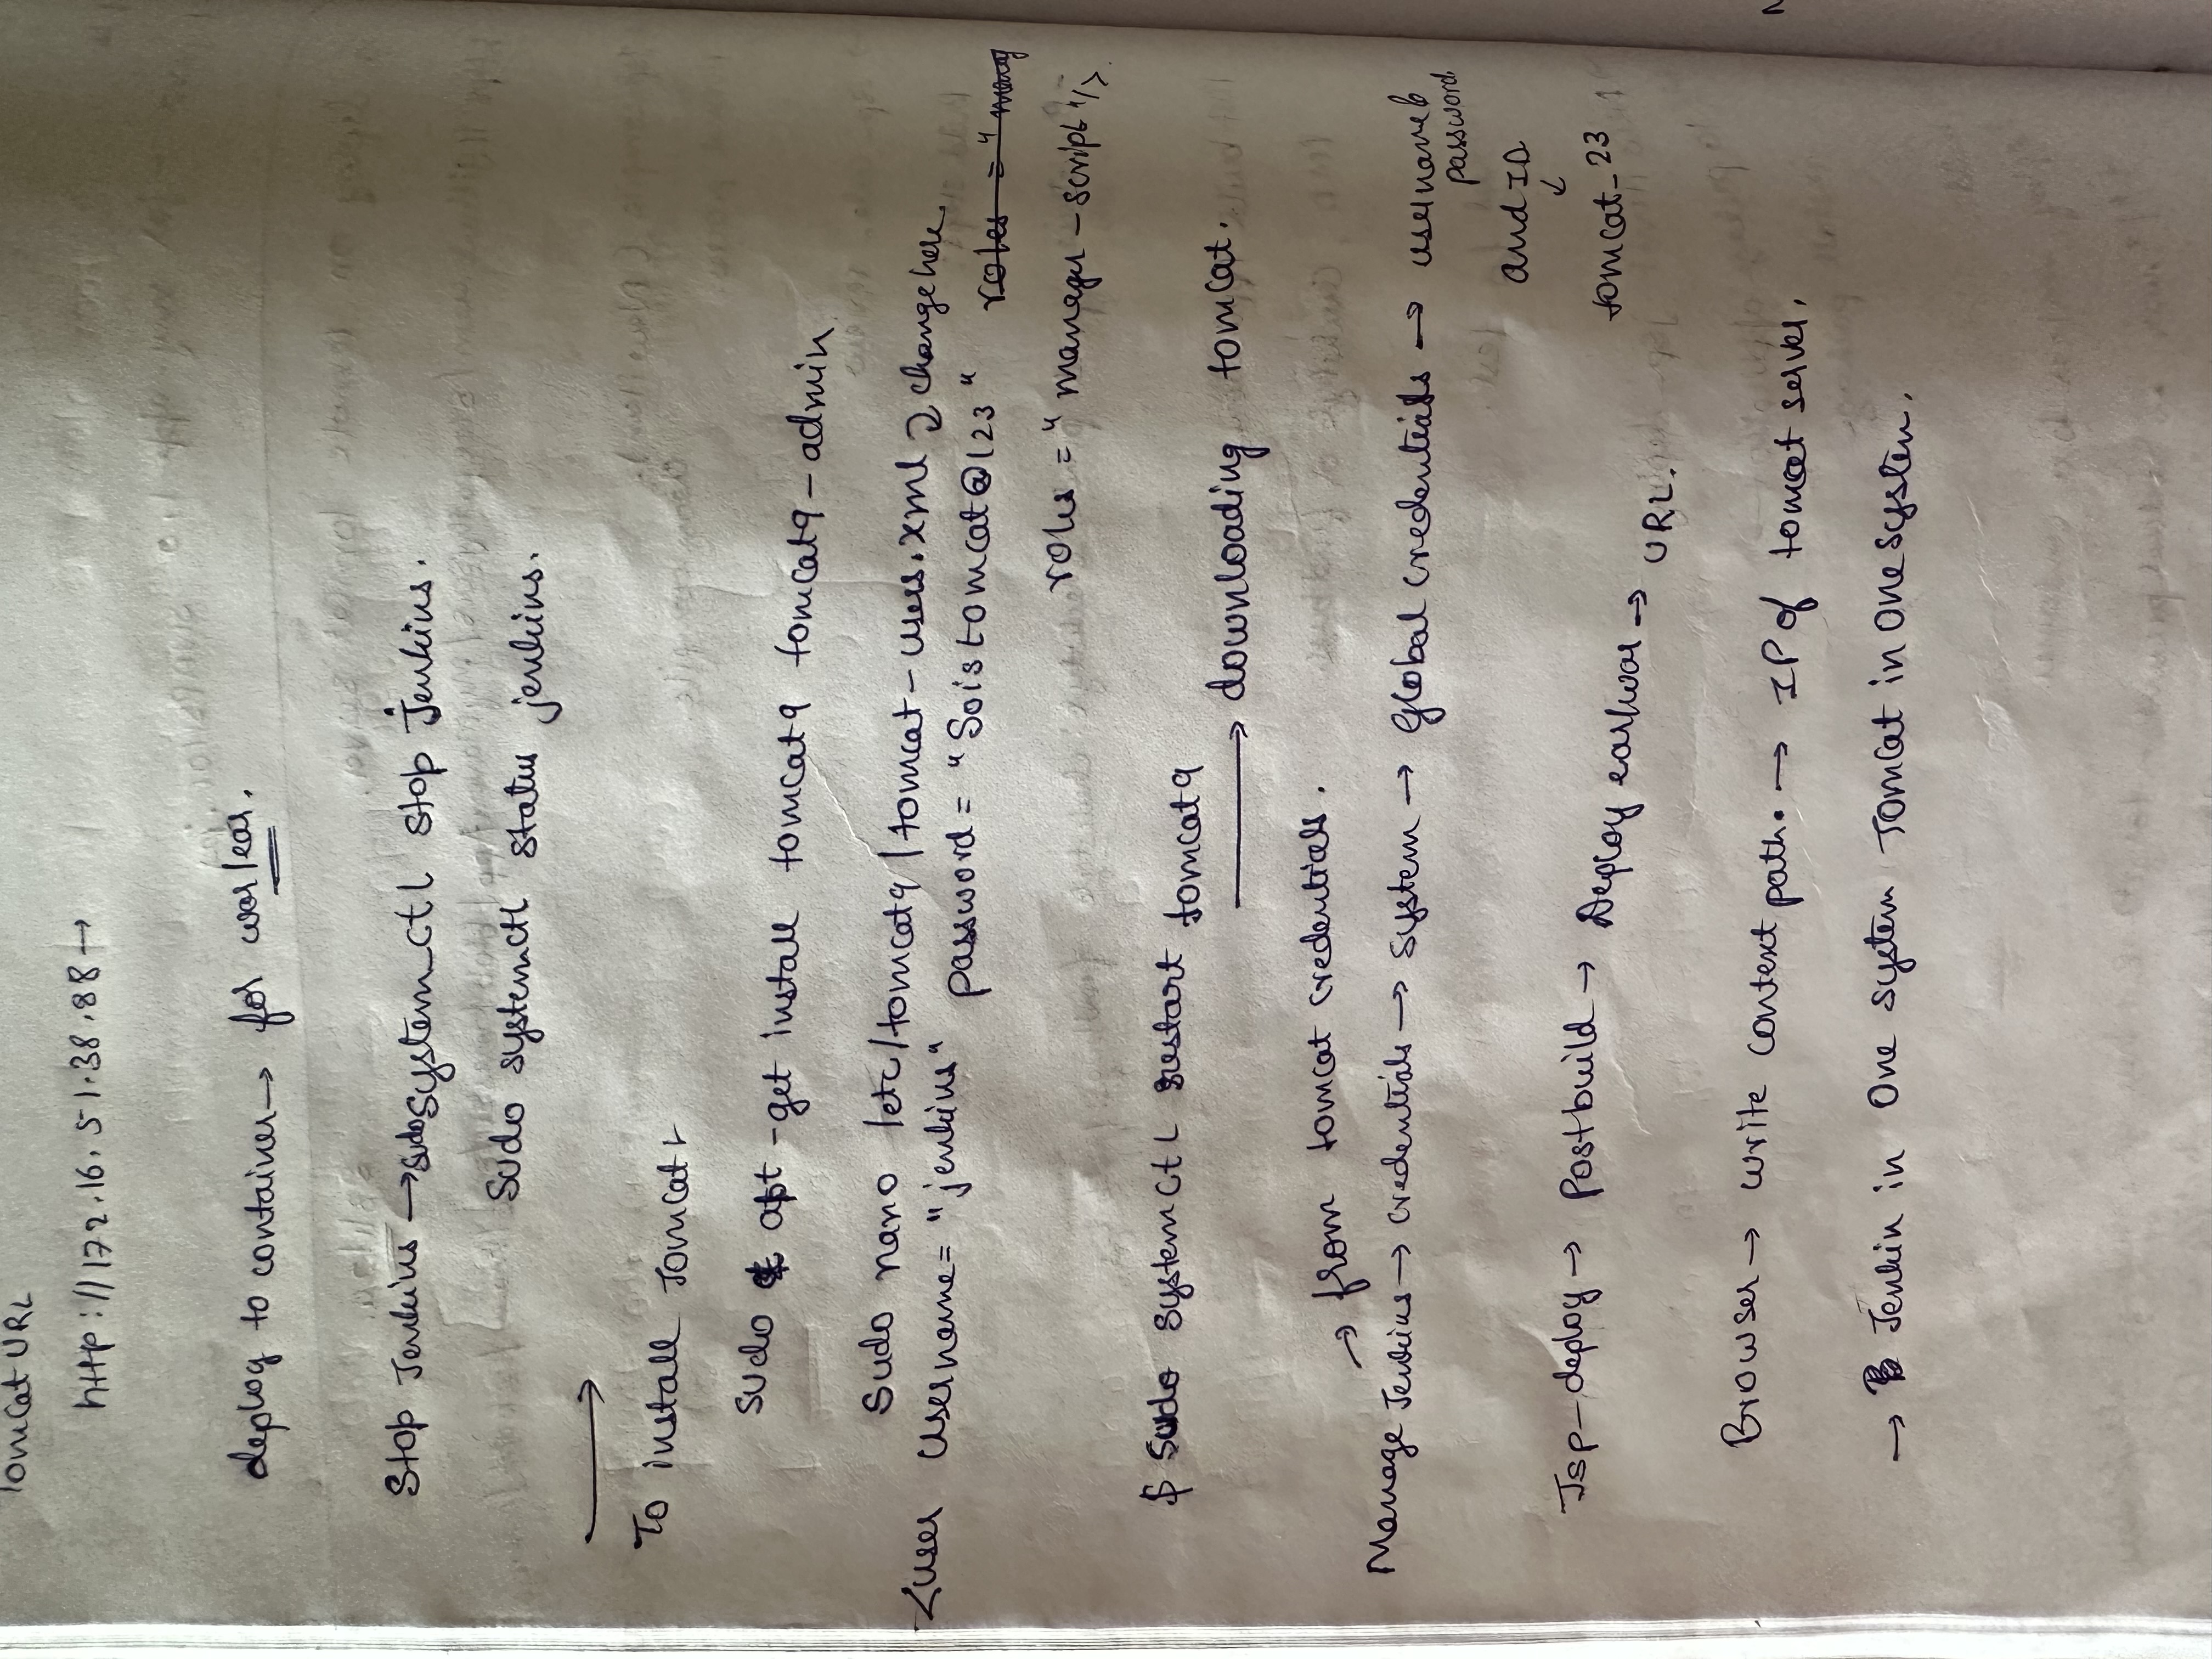 Tomcat URL
http://172.16.51.38.88→
deploy to container→ for war/ear.
Stop Jenkins →sudo system_ctl stop Jenkins.
Sudo systemctl status jenkins.
→
To install Tomcat
sudo apt-get install tomcat9 tomcat9-admin
Sudo nano /etc/tomcat9/tomcat-users.xml change here
<user username="jenkins" password="Soistomcat@123" roles="manag
roles="manager-script"/>
$ Sudo systemctl restart tomcat9
→ downloading tomcat.
→ from tomcat credentials.
Manage Jenkins→ credentials→ system→ Global credentials → username &
password
and ID
↓
Jsp-deploy→ Postbuild→ Deploy ear/war→ URL.
tomcat-23
Browser→ write context path.→ IP of tomcat server.
→ Jenkin in One system Tomcat in One system.